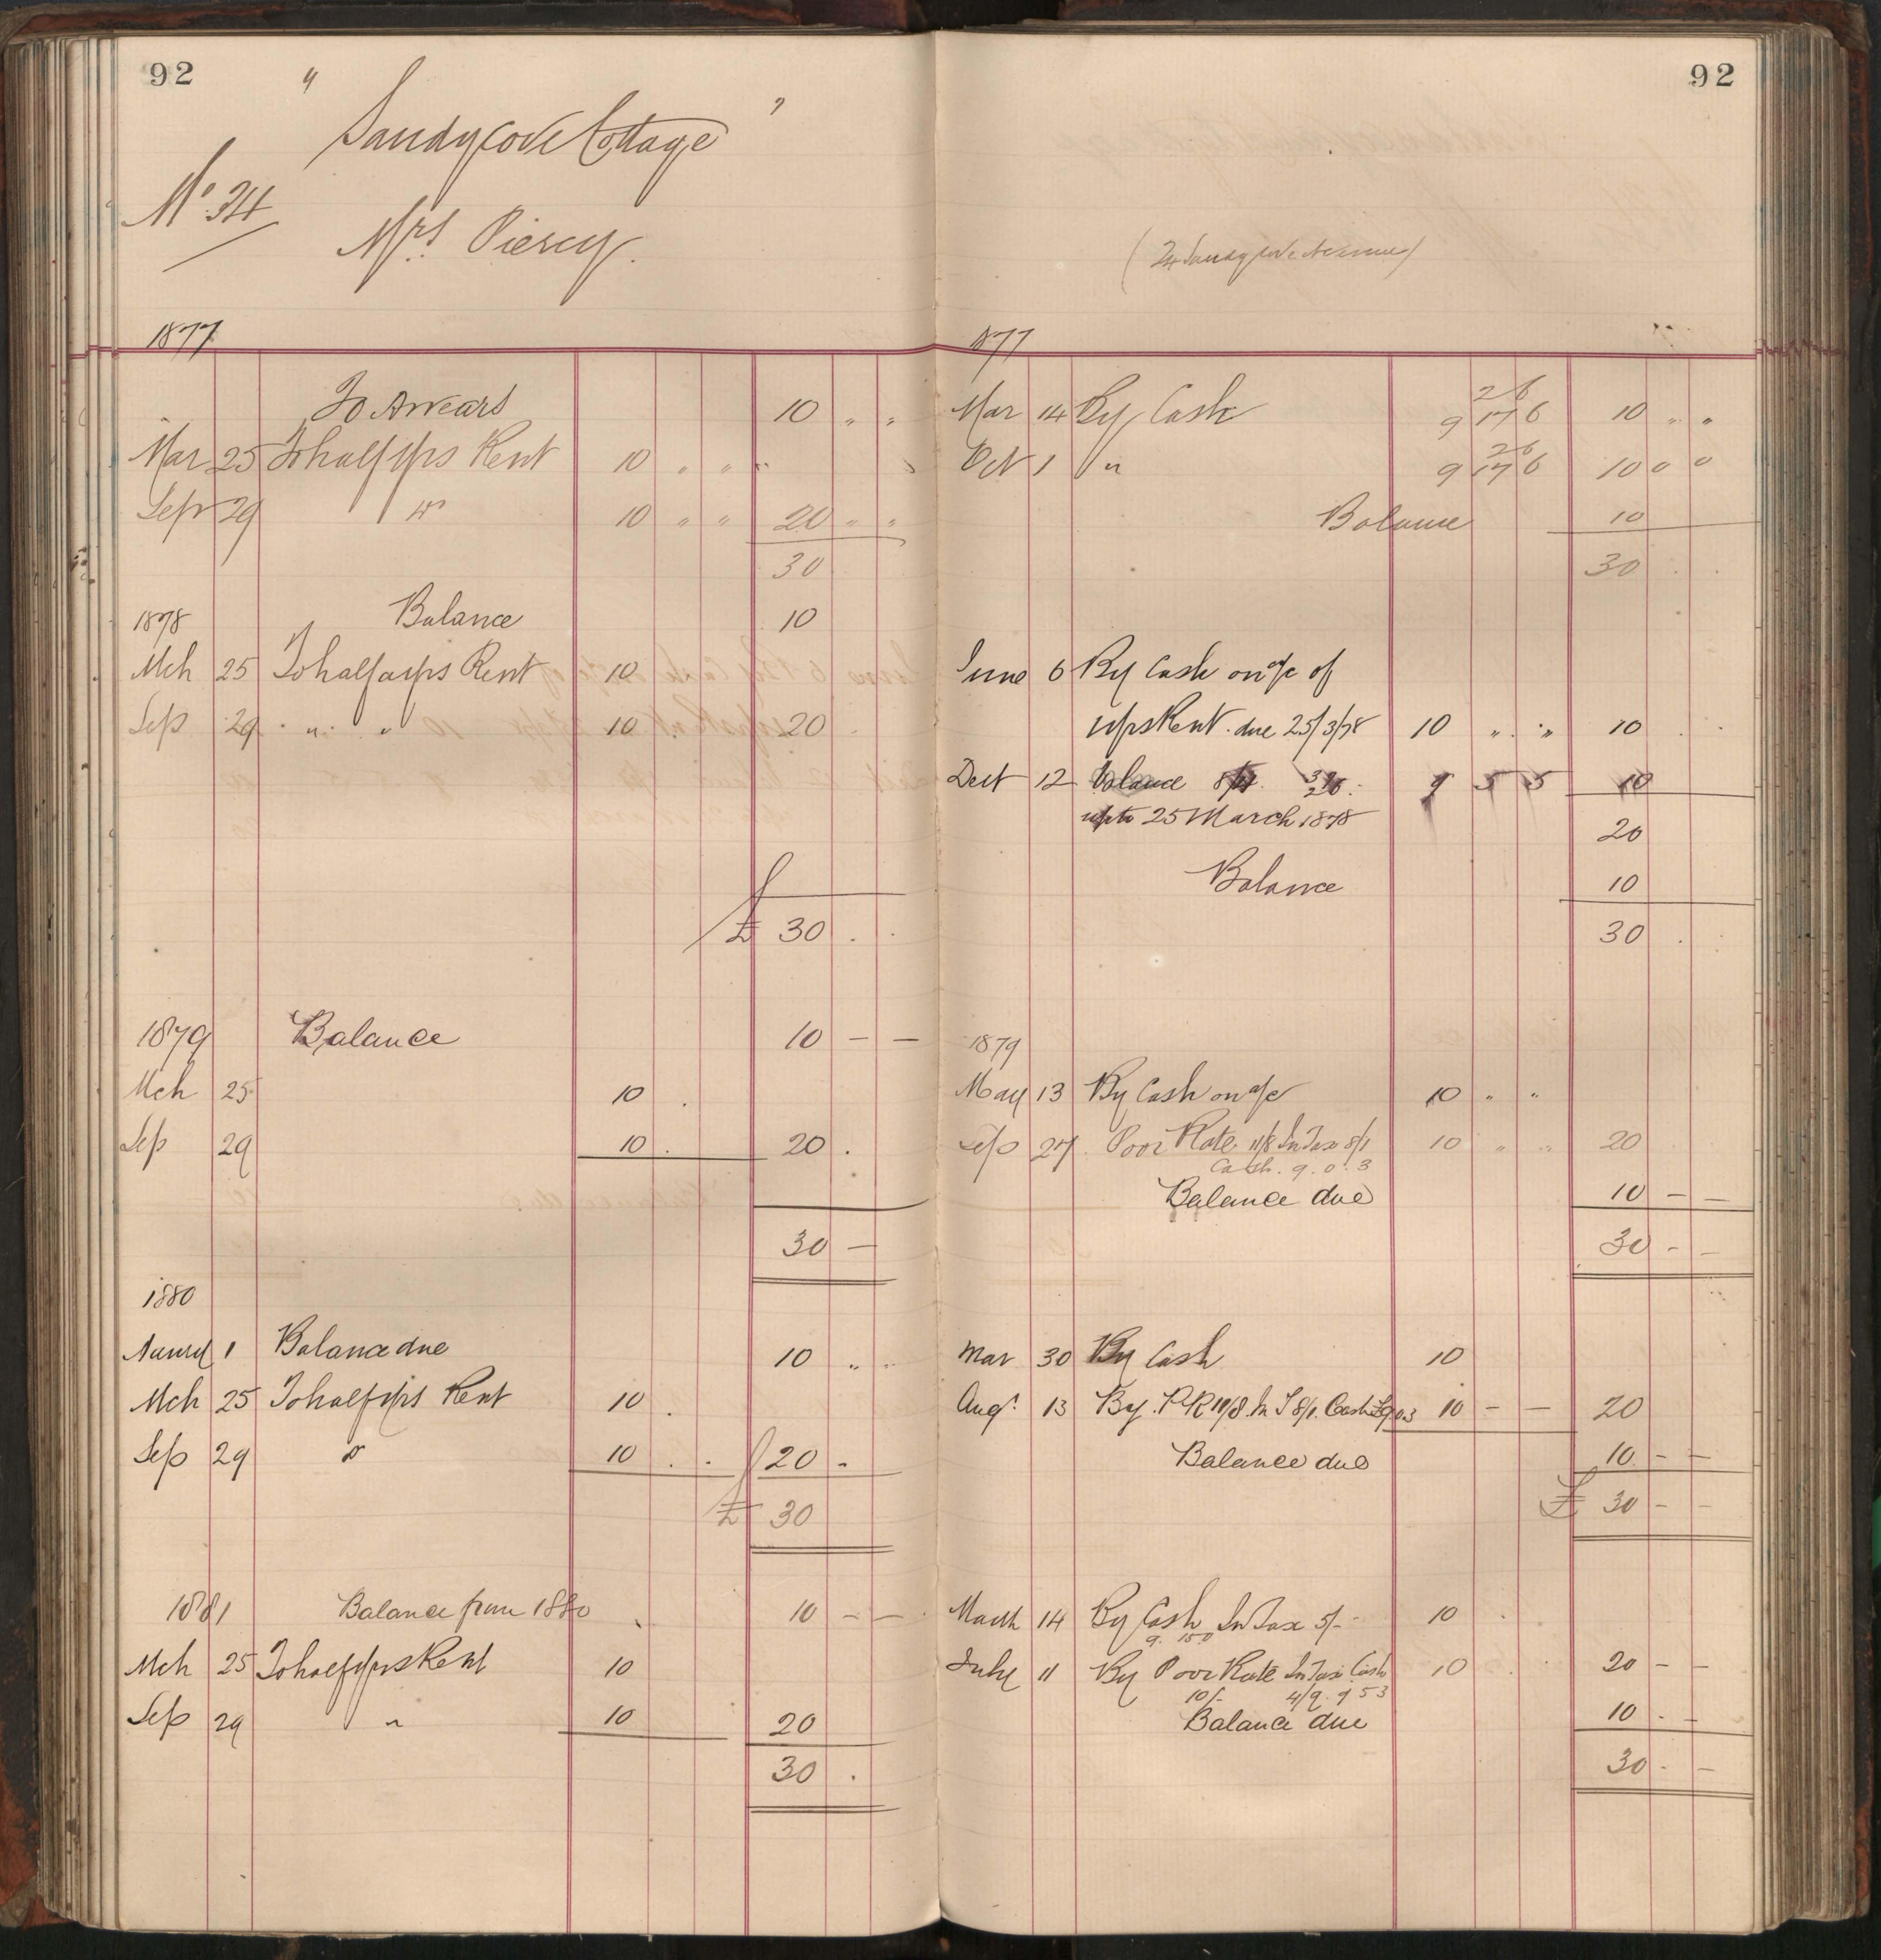 92
" Sandycove Cottage "
No. 34
Mrs. Piercy.
1877
To Arrears 10 " "
Mar 25 To half yrs Rent 10 " " "
Sepr 29 " Do 10 " " 20 " "
30
1878 Balance 10
Mch 25 To half yrs Rent 10
Sep 29 " " 10 20
£ 30 . .
1879 Balance 10 — —
Mch 25 10 .
Sep 29 10 . 20 .
30 —
1880
1 Balance due 10 " "
Mch 25 To half yrs Rent 10 .
Sep 29 Do 10 . . 20 -
£ 30
1881 Balance from 1880 10 — —
Mch 25 To half yrs Rent 10
Sep 29 " 10 20
30 .
92
(24 Sandycove Avenue)
1877
2 6
Mar 14 By Cash 9 17 6 10 " "
2 6
Oct 1 " 9 17 6 10 0 0
Balance 10
30 . .
June 6 By Cash on a/c of
½ yrs Rent due 25/3/78 10 " " 10 . .
Dect 12 balance 9 5 5 10
up to 25 March 1878
20
Balance 10
30 .
1879
May 13 By Cash on a/c 10 " "
Sep 27 Poor Rate 11/8 In Tax 8/1 10 " " 20
Cash. 9. 0. 3
Balance due 10 — —
30 - -
Mar 30 By Cash 10
Augt. 13 By P.R. 11/8 In T 8/1. Cash £9.0.3 10 — — 20
Balance due 10 — —
£ 30 - -
March 14 By Cash In Tax 5/- 10 .
9. 15.0
July 11 By Poor Rate In Tax Cash 10 . . 20 — —
10/- 4/9. 9 5 3
Balance due 10 . —
30 - —